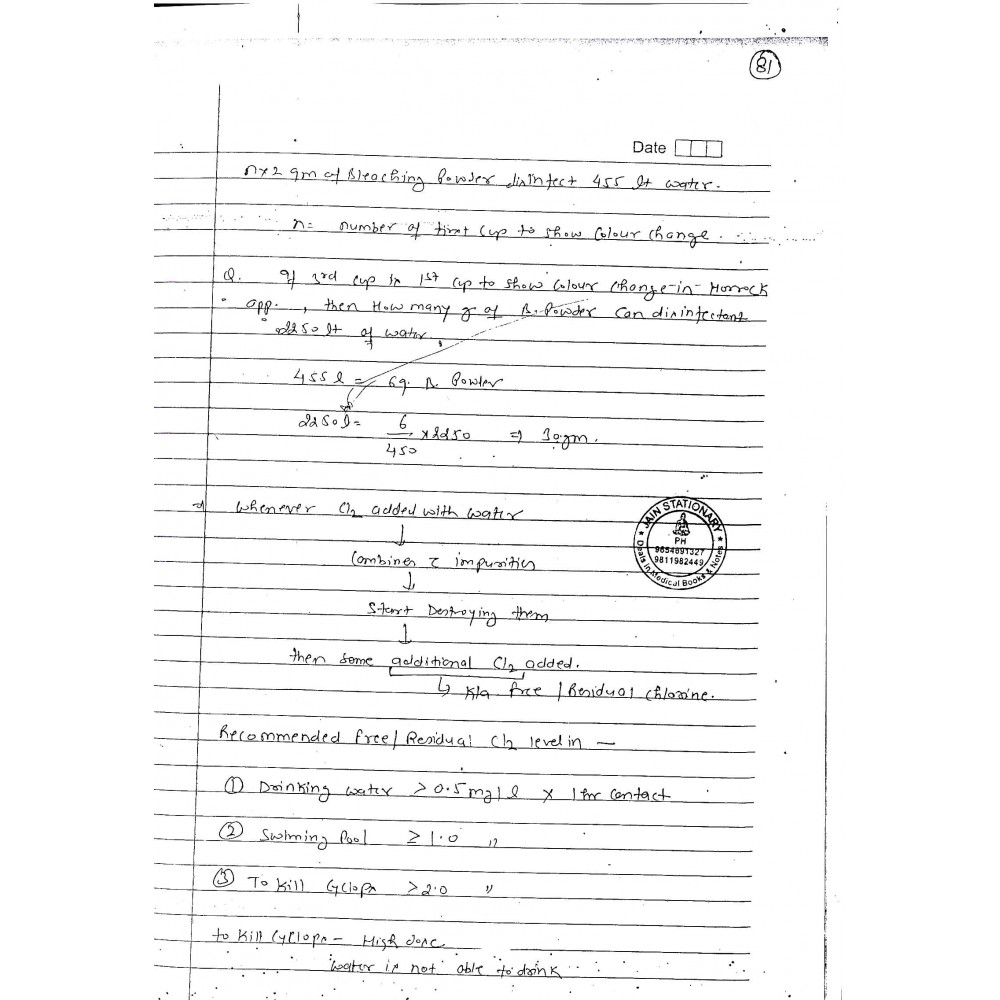 81
Date
n×2 gm of Bleaching Powder disinfect 455 lt water.
n= number of first cup to show Colour change.
Q. If 3rd cup is 1st cup to show colour change in Horrock
app., then How many g of B. Powder can disinfectant
2250 lt of water.
455 l = 6g. B. Powder
2250 l = 6/450 ×2250 ⇒ 30gm.
⇒ Whenever Cl2 added with water
↓
Combines c̄ impurities
↓
Start Destroying them
↓
then some additional Cl2 added.
↳ K/a free / Residual chlorine.
Recommended free/Residual Cl2 level in —
① Drinking water > 0.5 mg/l × 1 hr contact
② Swiming Pool ≥ 1.0 "
③ To Kill Cyclops > 2.0 "
to Kill Cyclops - High dose
water is not able to drink
JAIN STATIONARY
PH
9654691327
9811982449
Deals in Medical Books & Notes